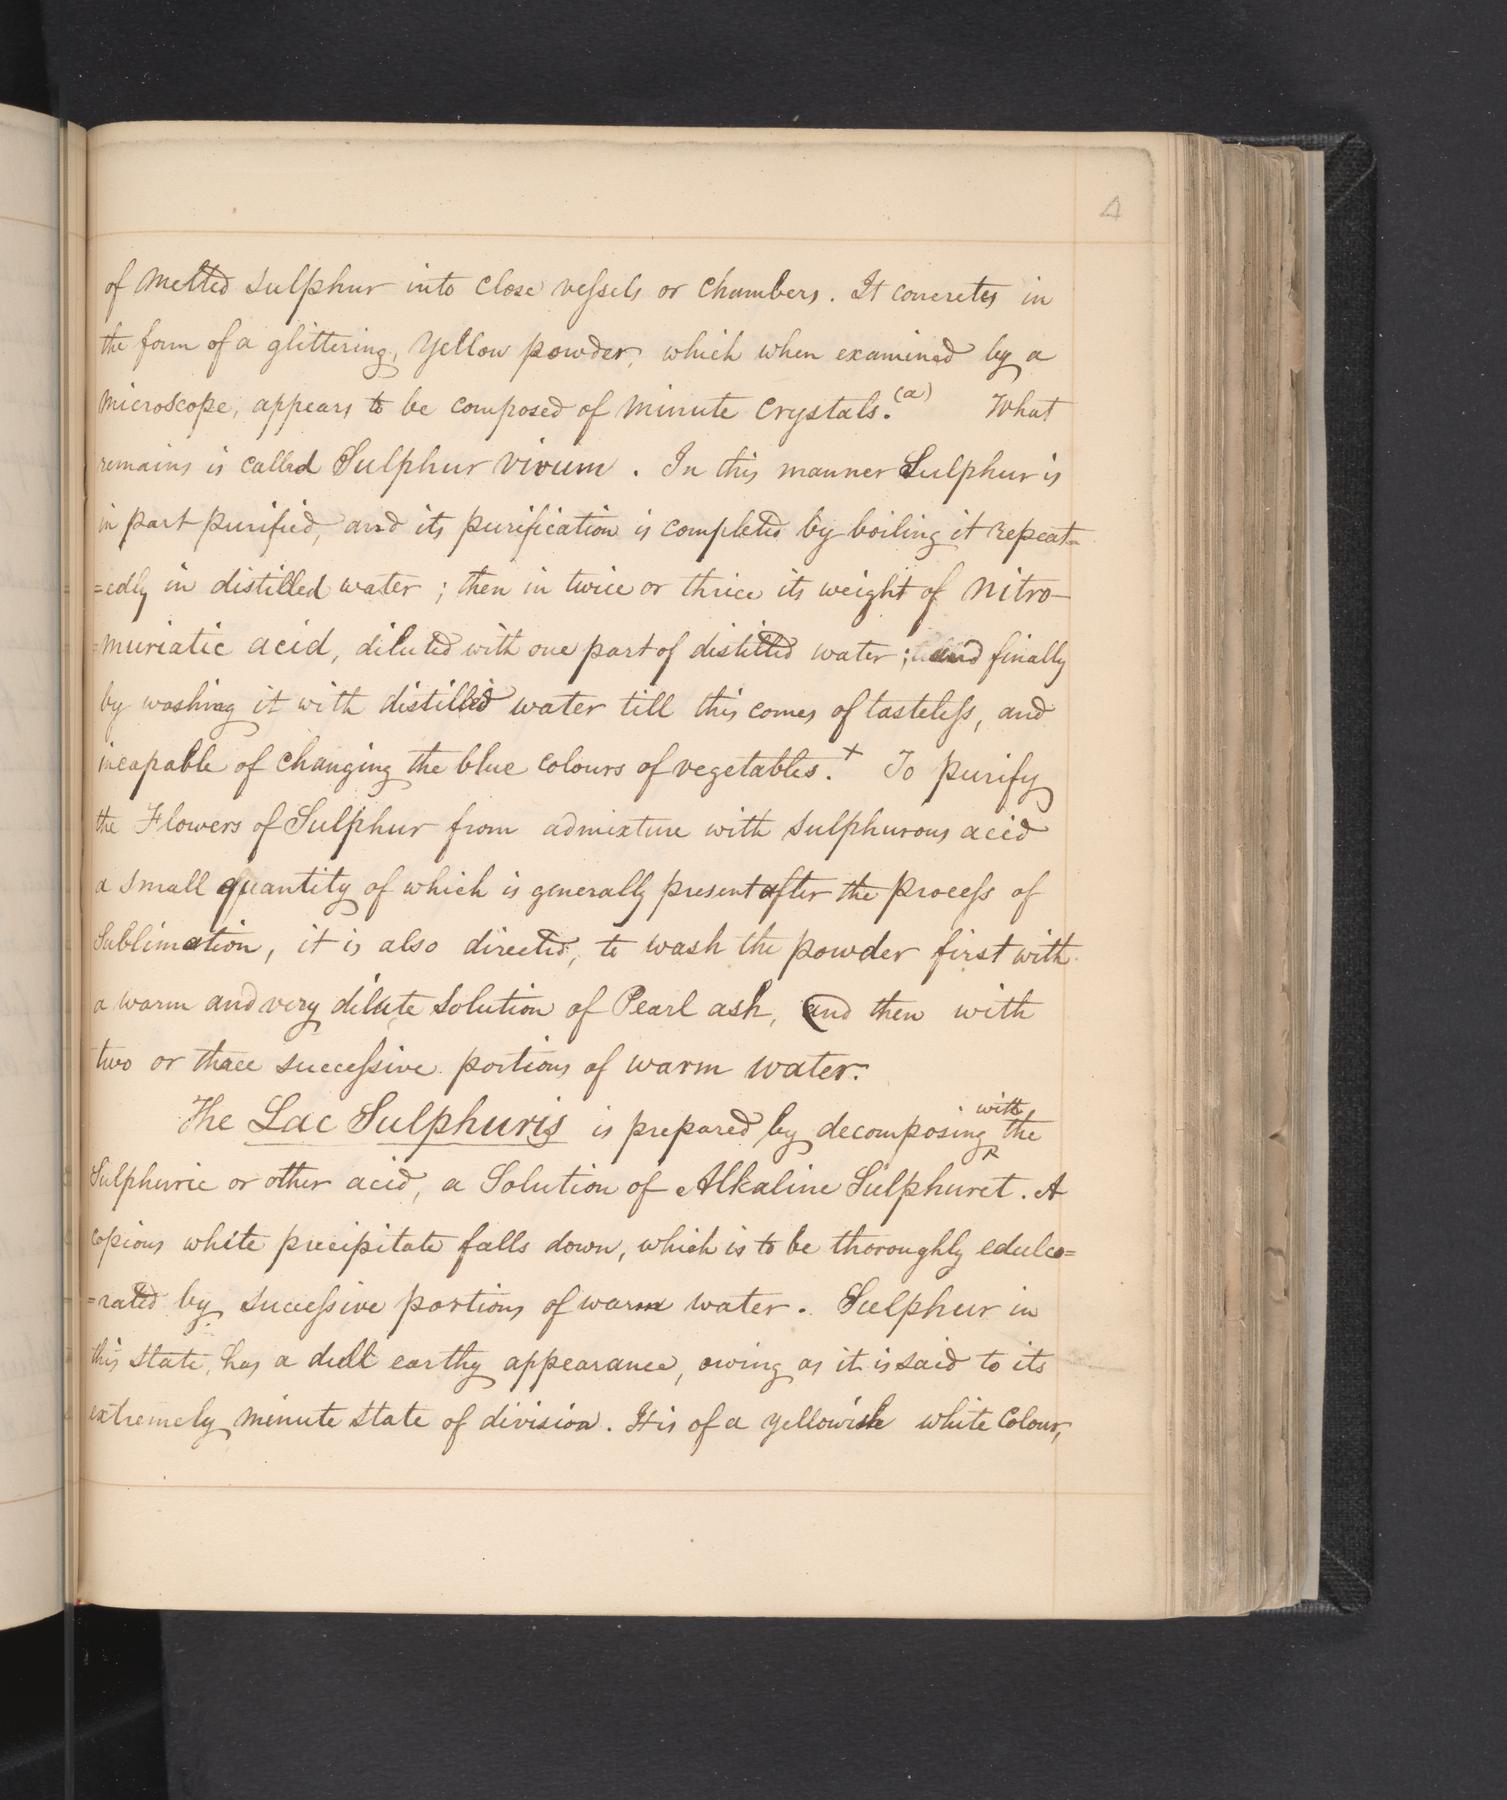 4
of melted sulphur into close veſsels or chambers. It concretes in
the form of a glittering, Yellow powder, which when examined by a
microscope, appears to be composed of minute crystals.(a) What
remains is called Sulphur vivum. In this manner Sulphur is
in part purified, and its purification is completed by boiling it repeat=
=edly in distilled water; then in twice or thrice its weight of Nitro-
=muriatic acid, diluted with one part of distilled water; and finally
by washing it with distilled water till this comes of tasteleſs, and
incapable of changing the blue colours of vegetables.+ To purify
the Flowers of Sulphur from admixture with sulphurous acid
a small quantity of which is generally present after the proceſs of
Sublimation, it is also directed, to wash the powder first with
a warm and very dilute solution of Pearl ash, and then with
two or three succeſsive portions of warm water.
with
The Lac Sulphuris is prepared by decomposing the
Sulphuric or other acid, a Solution of Alkaline Sulphuret. A
copious white precipitate falls down, which is to be thoroughly edulco=
=rated by succeſsive portions of warm water. Sulphur in
this state, has a dull earthy appearance, owing as it is said to its
extremely minute state of division. It is of a yellowish white Colour,